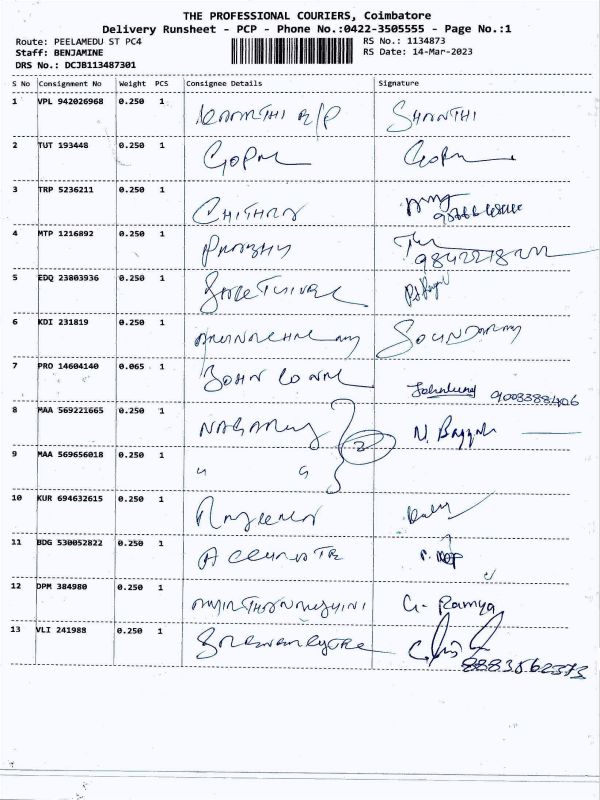 THE PROFESSIONAL COURIERS, Coimbatore
Delivery Runsheet - PCP - Phone No.:0422-3505555 - Page No.:1
Route: PEELAMEDU ST PC4 RS No.: 1134873
Staff: BENJAMINE RS Date: 14-Mar-2023
DRS No.: DCJB113487301
S No Consignment No Weight PCS Consignee Details Signature
1 VPL 942026968 0.250 1 SHANTHI
2 TUT 193448 0.250 1 GOPAL
3 TRP 5236211 0.250 1 CHITHRA
4 MTP 1216892 0.250 1 PRABHU
5 EDQ 23803936 0.250 1
6 KDI 231819 0.250 1 ARUNACHALAM
7 PRO 14604140 0.065 1 JOHN 9003388406
8 MAA 569221665 0.250 1 NAGARAJ
9 MAA 569656018 0.250 1 " "
2
10 KUR 694632615 0.250 1
11 BDG 530052822 0.250 1
12 DPM 384980 0.250 1 G. Ramya
13 VLI 241988 0.250 1
8883562373